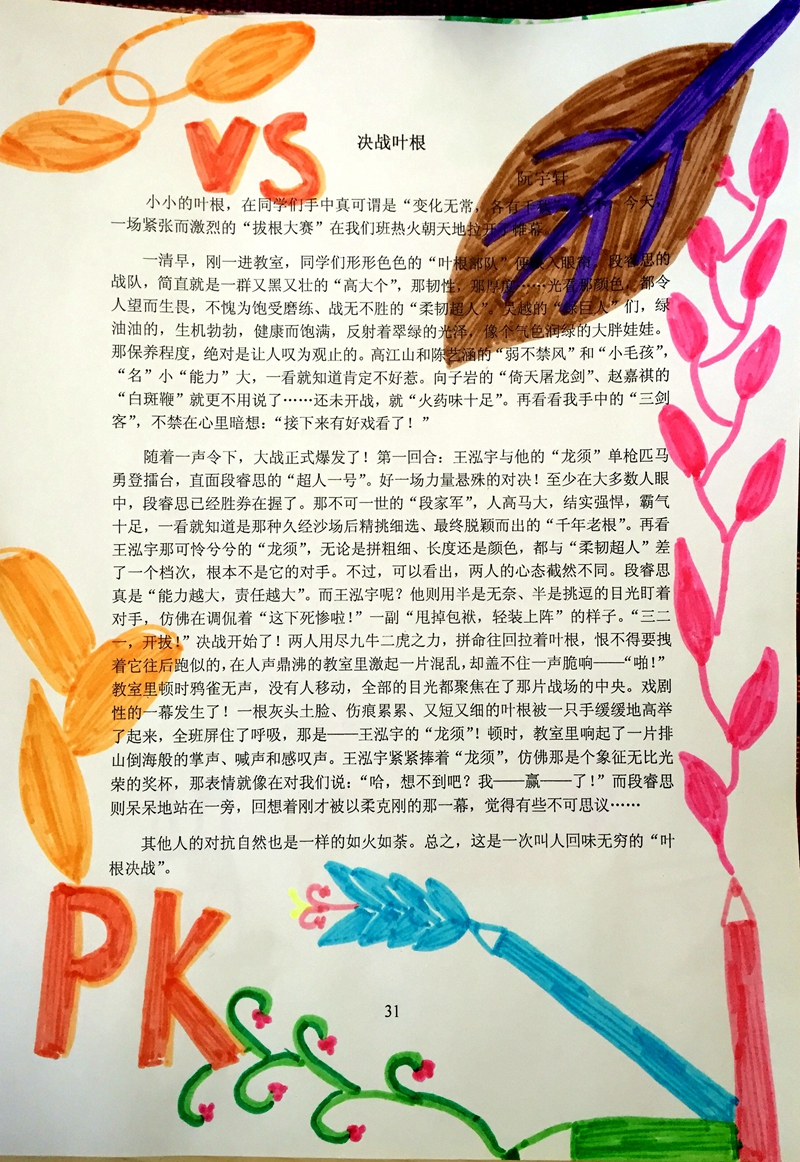 VS
决战叶根
阮宇轩
小小的叶根，在同学们手中真可谓是“变化无常，各有千 今天，
一场紧张而激烈的“拔根大赛”在我们班热火朝天地拉开了帷幕。
一清早，刚一进教室，同学们形形色色的“叶根部队”便映入眼帘。段睿思的
战队，简直就是一群又黑又壮的“高大个”，那韧性，那厚度……光看那颜色，都令
人望而生畏，不愧为饱受磨练、战无不胜的“柔韧超人”。吴越的“绿巨人”们，绿
油油的，生机勃勃，健康而饱满，反射着翠绿的光泽，像个气色润绿的大胖娃娃。
那保养程度，绝对是让人叹为观止的。高江山和陈艺涵的“弱不禁风”和“小毛孩”，
“名”小“能力”大，一看就知道肯定不好惹。向子岩的“倚天屠龙剑”、赵嘉祺的
“白斑鞭”就更不用说了……还未开战，就“火药味十足”。再看看我手中的“三剑
客”，不禁在心里暗想：“接下来有好戏看了！”
随着一声令下，大战正式爆发了！第一回合：王泓宇与他的“龙须”单枪匹马
勇登擂台，直面段睿思的“超人一号”。好一场力量悬殊的对决！至少在大多数人眼
中，段睿思已经胜券在握了。那不可一世的“段家军”，人高马大，结实强悍，霸气
十足，一看就知道是那种久经沙场后精挑细选、最终脱颖而出的“千年老根”。再看
王泓宇那可怜兮兮的“龙须”，无论是拼粗细、长度还是颜色，都与“柔韧超人”差
了一个档次，根本不是它的对手。不过，可以看出，两人的心态截然不同。段睿思
真是“能力越大，责任越大”。而王泓宇呢？他则用半是无奈、半是挑逗的目光盯着
对手，仿佛在调侃着“这下死惨啦！”一副“甩掉包袱，轻装上阵”的样子。“三二
一，开拔！”决战开始了！两人用尽九牛二虎之力，拼命往回拉着叶根，恨不得要拽
着它往后跑似的，在人声鼎沸的教室里激起一片混乱，却盖不住一声脆响——“啪！”
教室里顿时鸦雀无声，没有人移动，全部的目光都聚焦在了那片战场的中央。戏剧
性的一幕发生了！一根灰头土脸、伤痕累累、又短又细的叶根被一只手缓缓地高举
了起来，全班屏住了呼吸，那是——王泓宇的“龙须”！顿时，教室里响起了一片排
山倒海般的掌声、喊声和感叹声。王泓宇紧紧捧着“龙须”，仿佛那是个象征无比光
荣的奖杯，那表情就像在对我们说：“哈，想不到吧？我——赢——了！”而段睿思
则呆呆地站在一旁，回想着刚才被以柔克刚的那一幕，觉得有些不可思议……
其他人的对抗自然也是一样的如火如荼。总之，这是一次叫人回味无穷的“叶
根决战”。
PK
31